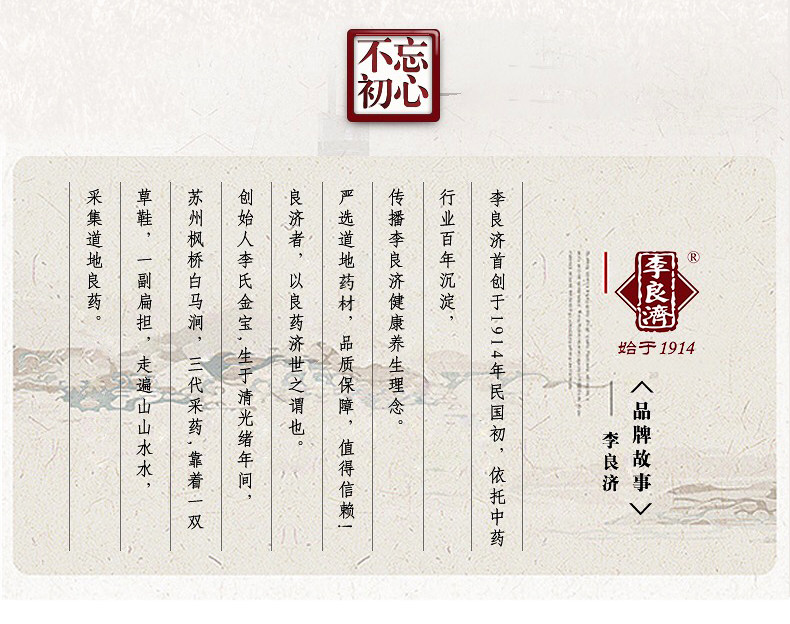 不忘
初心
李良濟
®
始于1914
品牌故事
李良济
李良济首创于1914年民国初，依托中药
行业百年沉淀，
传播李良济健康养生理念。
严选道地药材，品质保障，值得信赖！
良济者，以良药济世之谓也。
创始人李氏金宝,生于清光绪年间，
苏州枫桥白马涧，三代采药,靠着一双
草鞋，一副扁担，走遍山山水水，
采集道地良药。